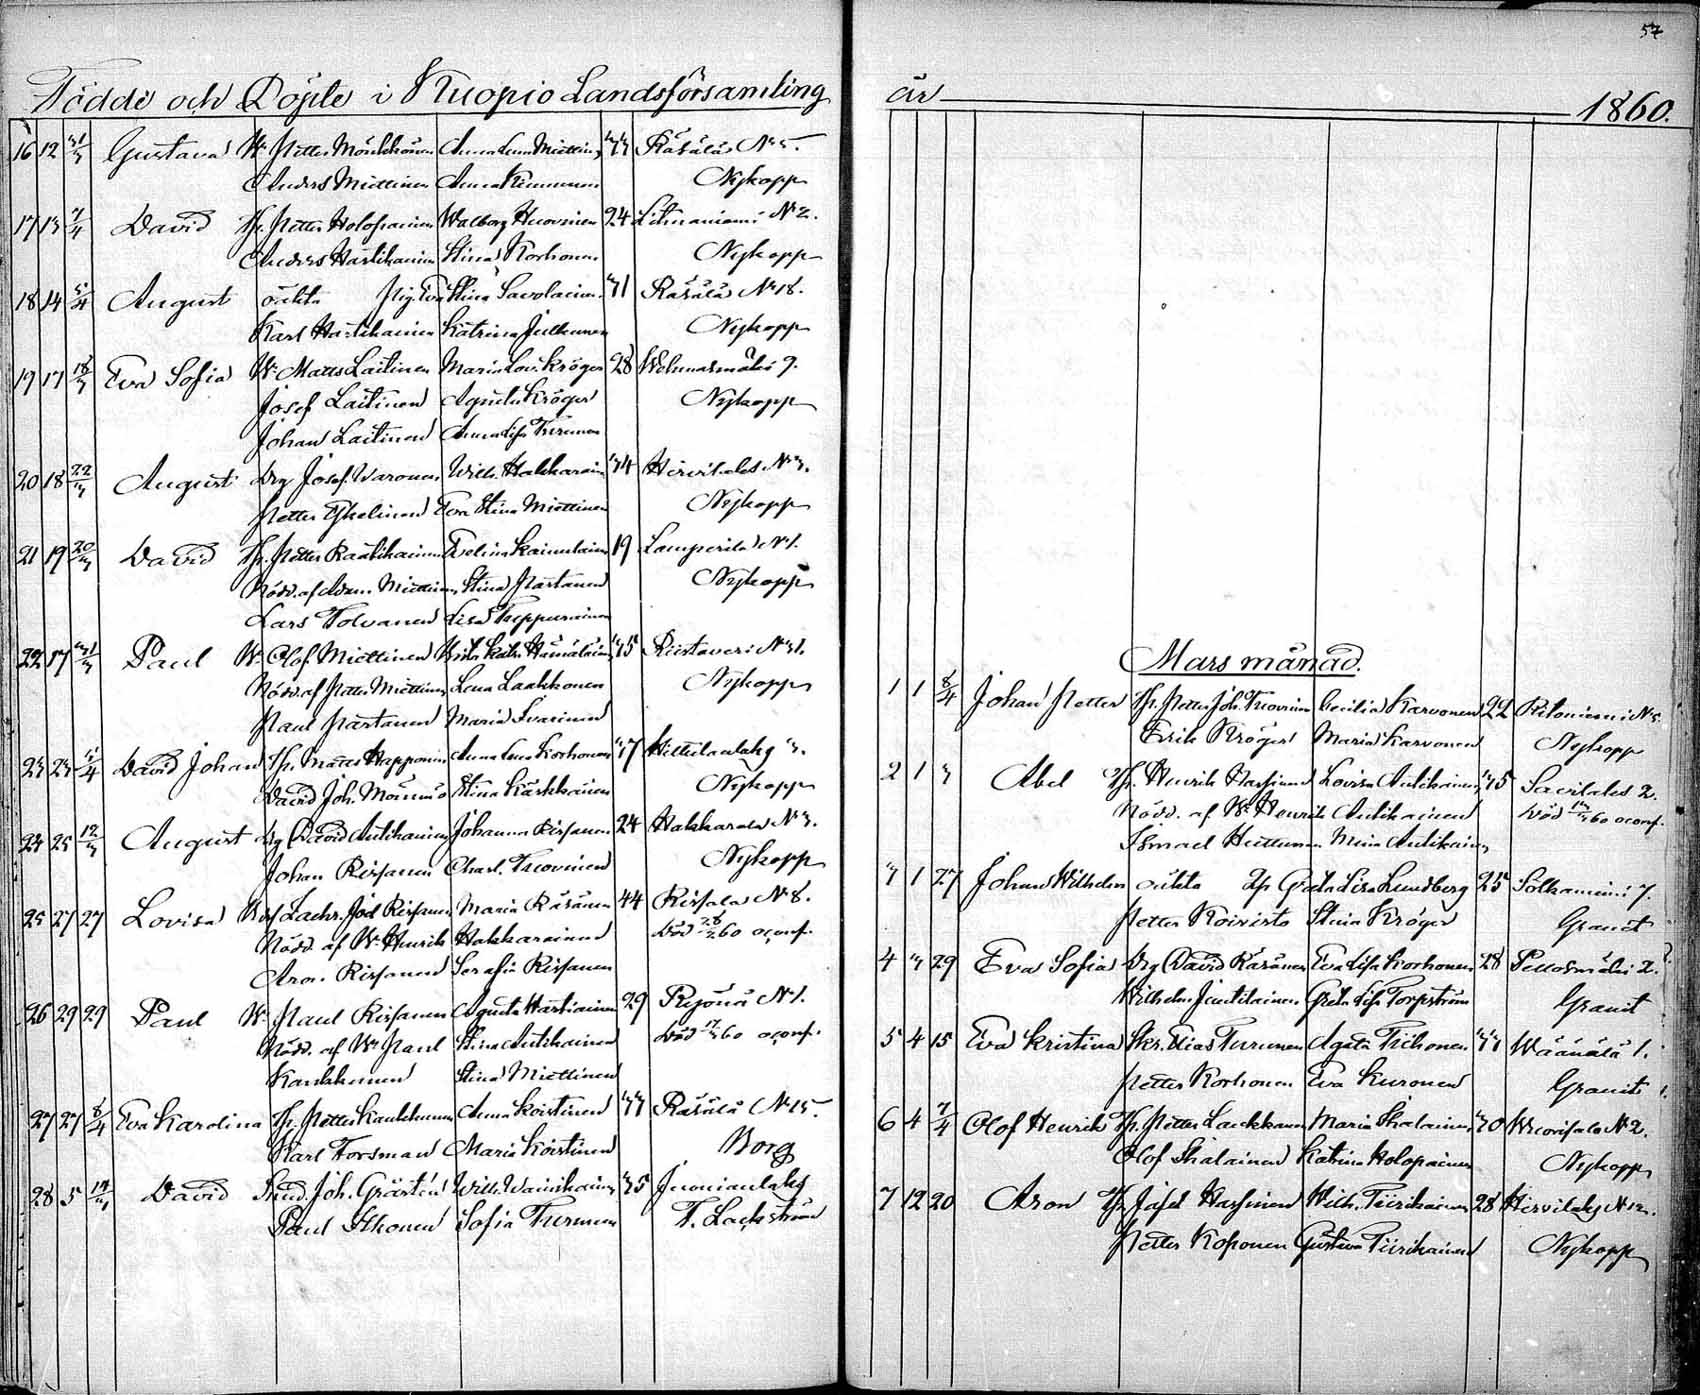 57
Födde och Döpte i Kuopio Landsförsamling
år 1860.
16 12 31/3 Gustava W. Petter Mönkkönen Anna Lena Miettin. 33 Räsälä N 5.
Anders Miettinen Anna Kinnunen Nykopp
17 13 7/4 David Hr. Petter Holopainen Walborg Huovinen 24 Litmaniemi N 2.
Anders Hartikainen Stina Korhonen Nykopp
18 14 5/4 August oäkta Pig. Eva Stina Savolainen 31 Räsälä N 18.
Karl Hartikainen Katrina Julkunen Nykopp
19 17 18/3 Eva Sofia W. Matts Laitinen Maria Lov. Kröger 28 Wehmasmäki 9.
Josef Laitinen Agneta Kröger Nykopp
Johan Laitinen Anna Lisa Turunen
20 18 22/3 August Drg Josef Waronen Wilh. Hakkarain 34 Hirvilaks N 3.
Petter Eva Stina Miettinen Nykopp
21 19 20/3 David Hr. Petter Raatikainen Evelina Kainulainen 19 Lamperila N 1.
Nödd. af Adam Miettinen, Stina Partanen Nykopp
Lars Tolvanen Lisa
22 17 31/3 Paul W. Olof Miettinen Brita Katr. Hämäläinen 35 Ristaveri N 31.
Nödd. af Petter Miettinen Lena Laakkonen Nykopp
Paul Partanen Maria
23 23 1/4 David Johan Hr. Matts Happonen Anna Lena Korhonen 37 3.
David Joh. Stina Kärkkäinen Nykopp
24 25 12/3 August Drg David Antikainen Johanna Rissanen 24 Hakkarala N 3.
Johan Rissanen Charl. Nykopp
25 27 27 Lovisa Zachr. Joel Rissanen Maria Räsänen 44 Rissala N 8.
Nödd. af W. Henrik Hakkarainen Död 28/2 60 oconf.
Aron Rissanen Serafia Rissanen
26 29 29 Paul W. Paul Rissanen Agneta Hartikainen 29 Ryönä N 1.
Nödd. af W. Paul Stina Antikainen Död 17/3 60 oconf.
Kaukkunen Stina Miettinen
27 27 8/4 Eva Karolina Hr. Petter Kaukkunen Anna Koistinen 33 Räsälä N 15.
Karl Forsman Maria Koistinen Borg
28 5 14/3 David Joh. Gråsten Wilh. Wainikainen 35
Paul Ikonen Sofia Turunen T. Lackström
Mars månad.
1 1 8/4 Johan Petter Hr. Petter Joh. Cecilia Karvonen 22 Ritoniemi N 5.
Erik Kröger Maria Karvonen Nykopp
2 1 3 Abel Hr. Henrik Lovisa Antikainen 35 Savilaks 2.
Nödd. af W. Henrik Antikainen Död 14/3 60 oconf.
Ismael Huttunen Mina Antikainen
3 1 27 Johan Wilhelm oäkta Greta Lisa Lundberg 25 7.
Petter Koivisto Stina Kröger Granit
4 3 29 Eva Sofia Drg David Räsänen Eva Lisa Korhonen 28 Pellosmäki 2.
Wilhelm Juntilainen Greta Lisa Torpström Granit
5 4 15 Eva Kristina Skr. Elias Turunen Agata Tiihonen 33 Wäänälä 1.
Petter Korhonen Eva Kuronen Granit
6 4 7/4 Olof Henrik Hr. Petter Laukkanen Maria Ikalainen 30 Wuorisalo N 2.
Olof Ikalainen Katrina Holopainen Nykopp
7 12 20 Aron Hr. Josef Wilh. Tiirikainen 28 Hirvilaks N 12.
Petter Koponen Gustava Tiirikainen Nykopp